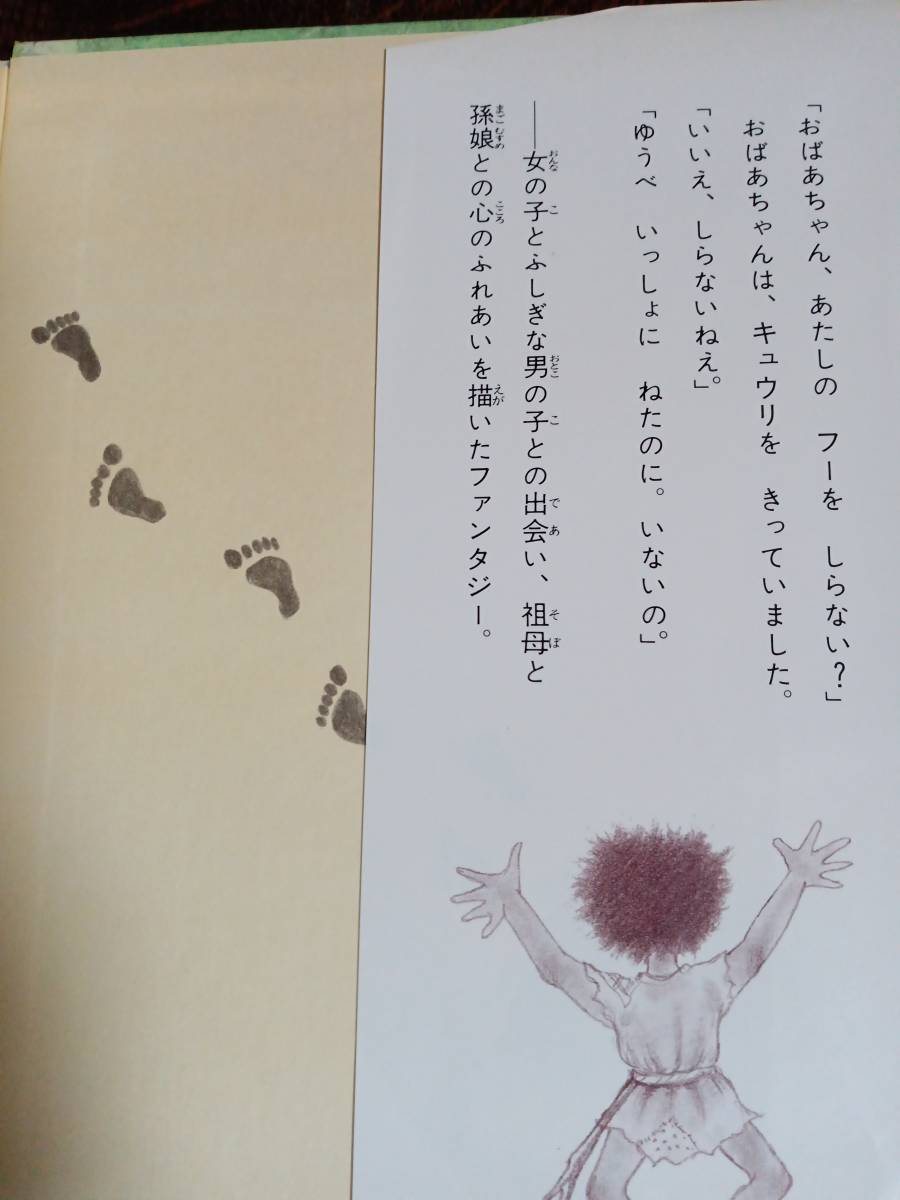 「おばあちゃん、あたしの　フーを　しらない？」
おばあちゃんは、キュウリを　きっていました。
「いいえ、しらないねえ。」
「ゆうべ　いっしょに　ねたのに。いないの。」
――女の子とふしぎな男の子との出会い、祖母と
孫娘との心のふれあいを描いたファンタジー。